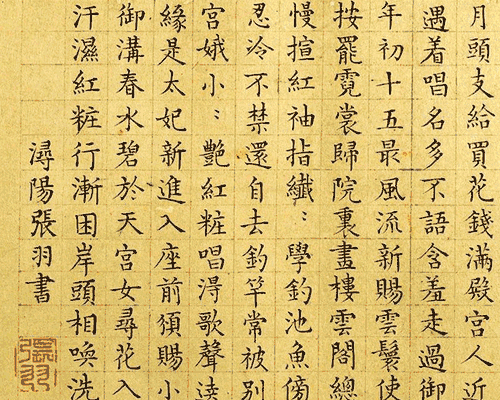 月頭支給買花錢滿殿宮人近
遇着唱名多不語含羞走過御
年初十五最風流新賜雲鬟使
按罷霓裳歸院裏畫樓雲閣總
慢揎紅袖指纖〻學釣池魚傍
忍冷不禁還自去釣竿常被別
宮娥小〻艷紅粧唱淂歌聲遶
緣是太妃新進入座前頒賜小
御溝春水碧於天宮女尋花入
汗濕紅粧行漸困岸頭相喚洗
潯陽張羽書
張羽